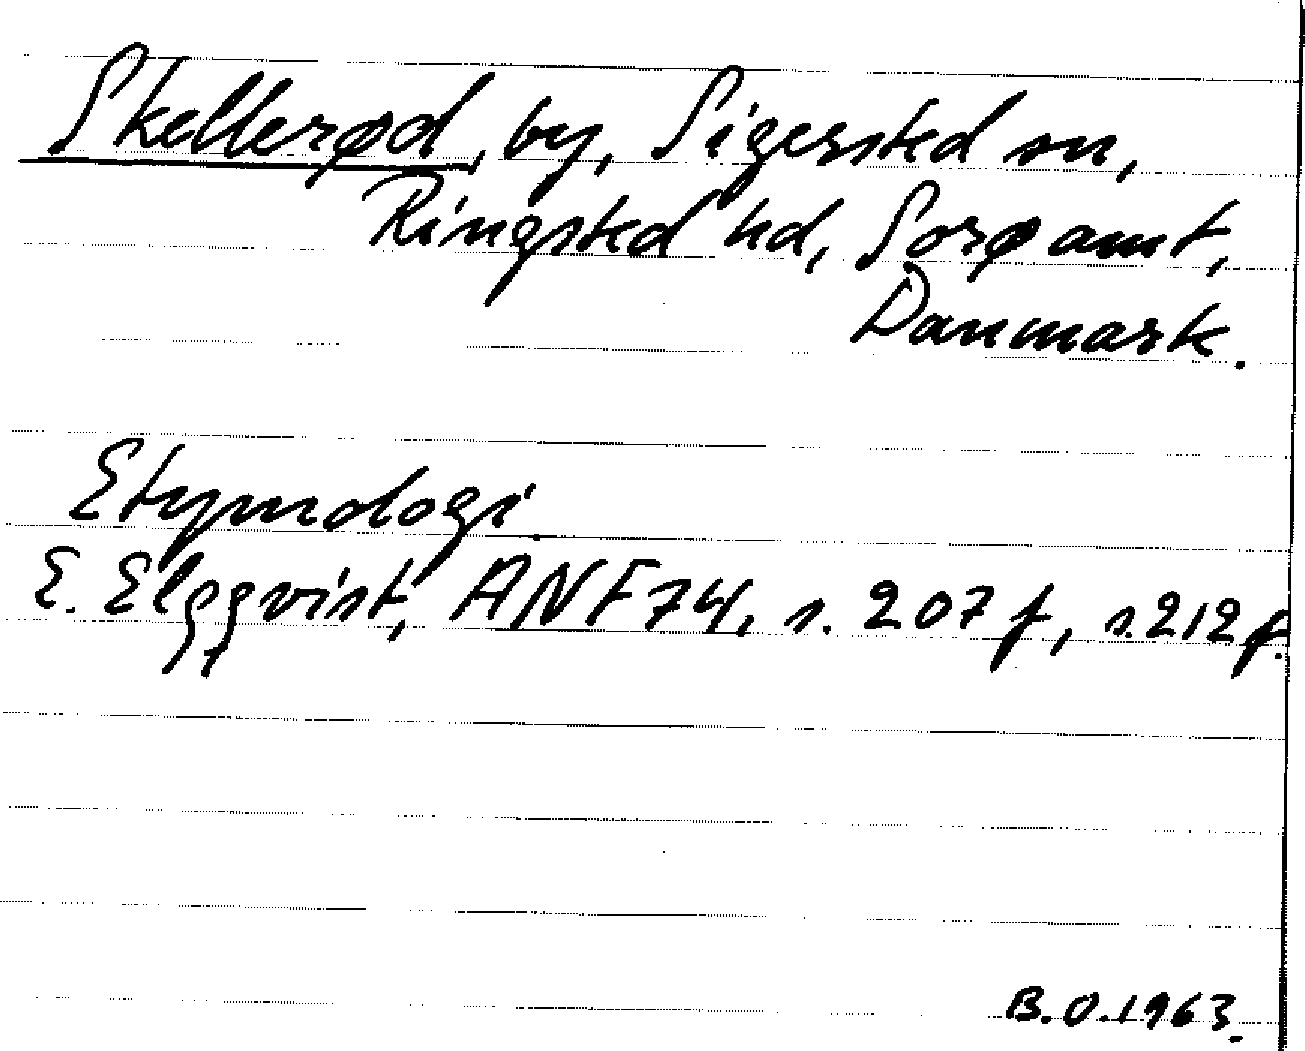 Skellerød, by, Sigersted sn,
Ringsted hd, Sorø amt,
Danmark.
Etymologi
E. Elgqvist, ANF 74, s. 207 f, s. 212 f.
B.O. 1963.